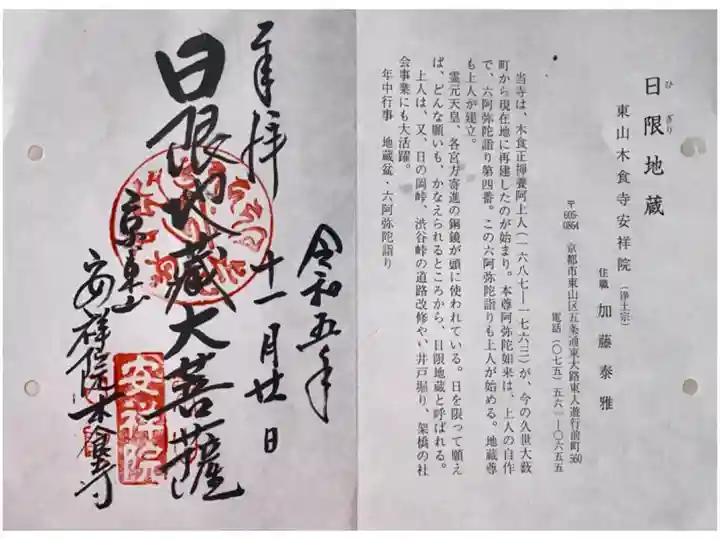 奉拝
令和五年
十一月廿日
日限地蔵大菩薩
京東山
安祥院木食寺
安祥院
日限地蔵
ひぎり
東山木食寺安祥院(浄土宗)
住職 加藤泰雅
〒605-0864 京都市東山区五条通東大路東入遊行前町560
電話(〇七五)五六一―〇六五五
当寺は、木食正禅養阿上人(一六八七―一七六三)が、今の久世大藪
町から現在地に再建したのが始まり。本尊阿弥陀如来は、上人の自作
で、六阿弥陀詣り第四番。この六阿弥陀詣りも上人が始める。地蔵尊
も上人が建立。
霊元天皇、各宮方寄進の銅鏡が頭に使われている。日を限って願え
ば、どんな願いも、かなえられるところから、日限地蔵と呼ばれる。
上人は、又、日の岡峠、渋谷峠の道路改修やい井戸堀り、架橋の社
会事業にも大活躍。
年中行事 地蔵盆、六阿弥陀詣り